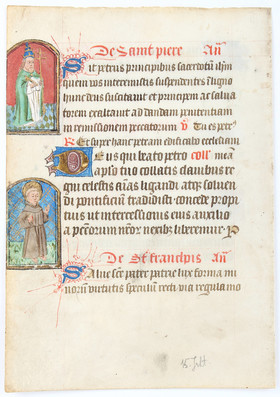 De Saint piere An
Dit petrus principibus sacerdotum ihm
quem vos interemistis suspendentes in ligno
hunc deus suscitauit et principem ac salua
torem exaltauit ad dandam penitentiam
in remissionem peccatorum V Tu es petr
R Et super hanc petram edificabo ecclesiam
Deus qui beato petro coll mea
apto tuo collatis clauibus re
gni celestis aīas ligandi atq soluen
di pontificium tradidisti concede propi
tius ut intercessionis eius auxilio
a pctorum nror nexibz liberemur P
De St franchois An
Salue scē pater patrie lux forma mi
norum virtutis speculum recti via regula mo